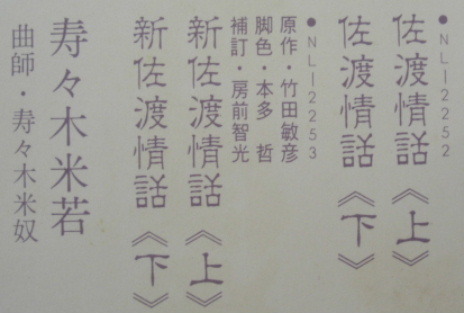 ●NL−2252
佐渡情話《上》
佐渡情話《下》
●NL−2253
原作・竹田敏彦
脚色・本多　哲
補訂・房前智光
新佐渡情話《上》
新佐渡情話《下》
寿々木米若
曲師・寿々木米奴